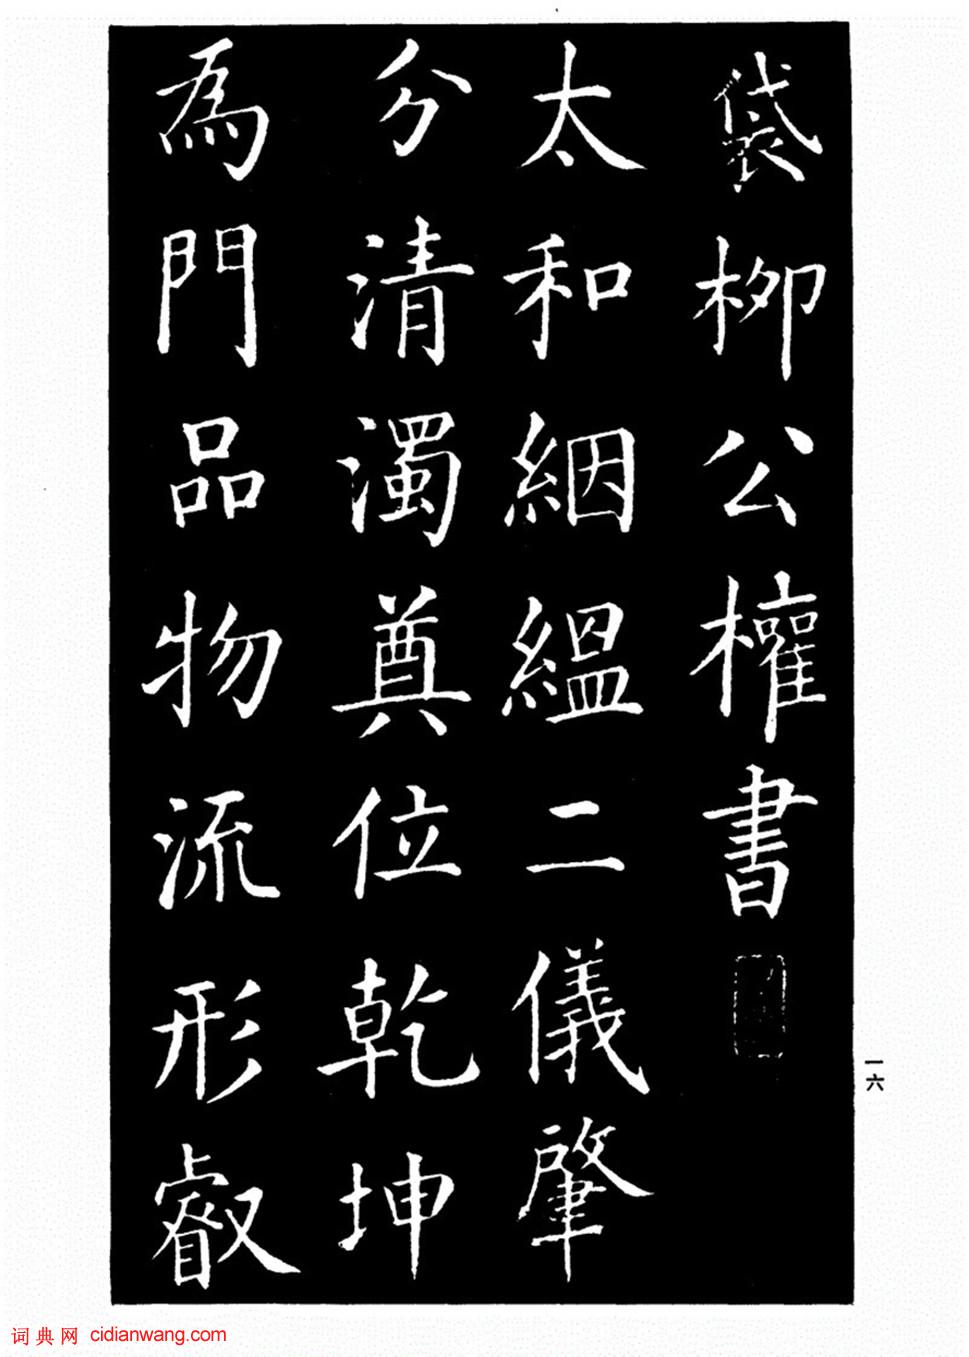 袋柳公權書
太和絪縕二儀肇
分清濁奠位乾坤
為門品物流形叡
一六
词典网 cidianwang.com